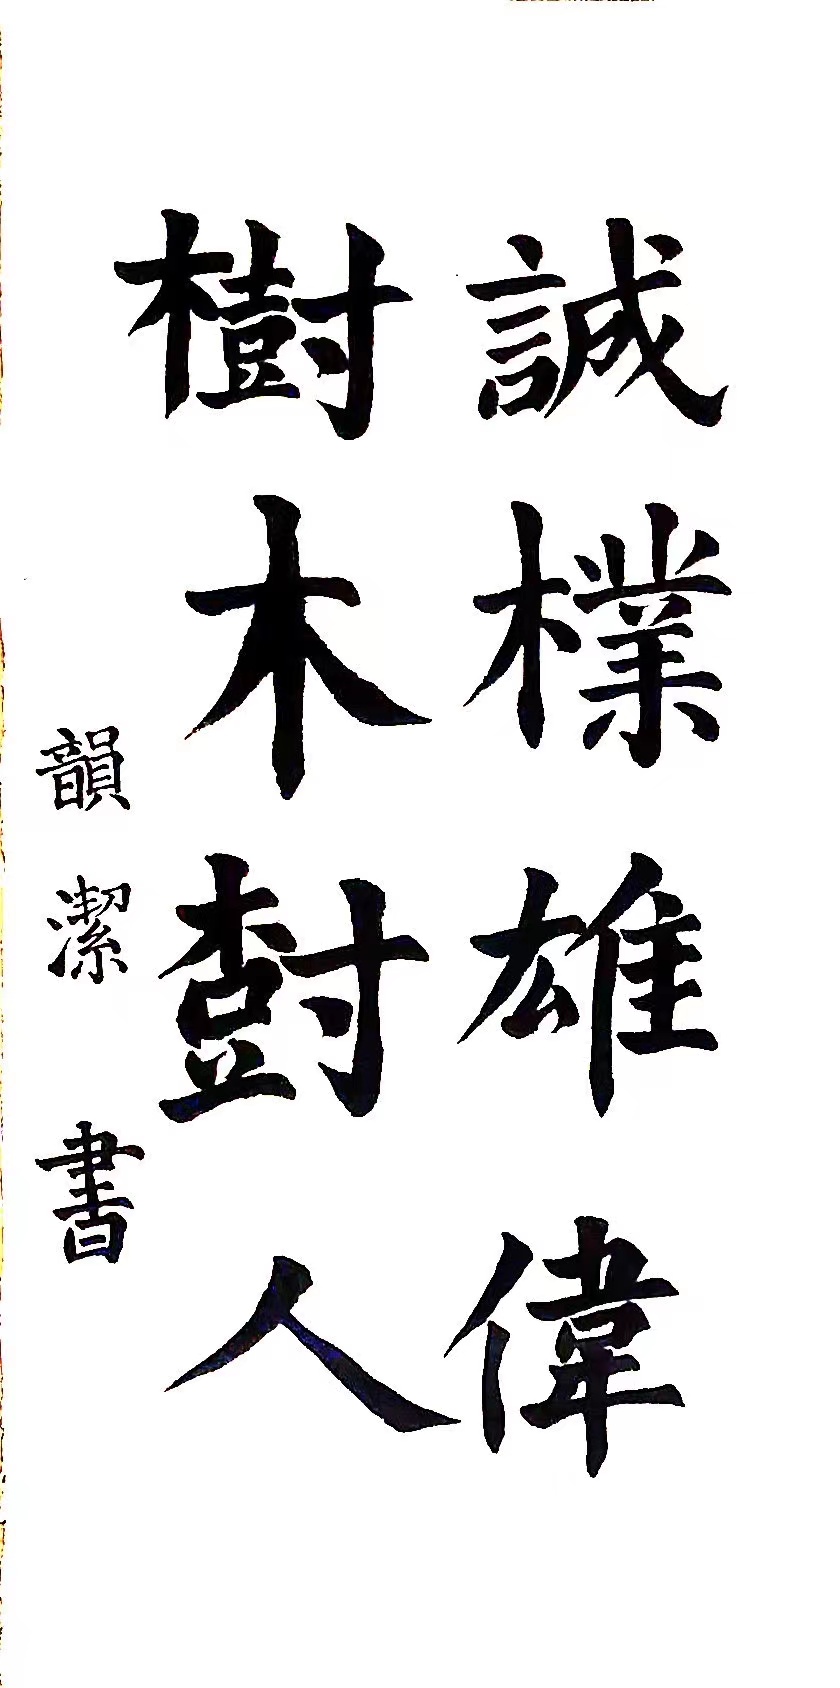 誠樸雄偉
樹木樹人
韻潔書